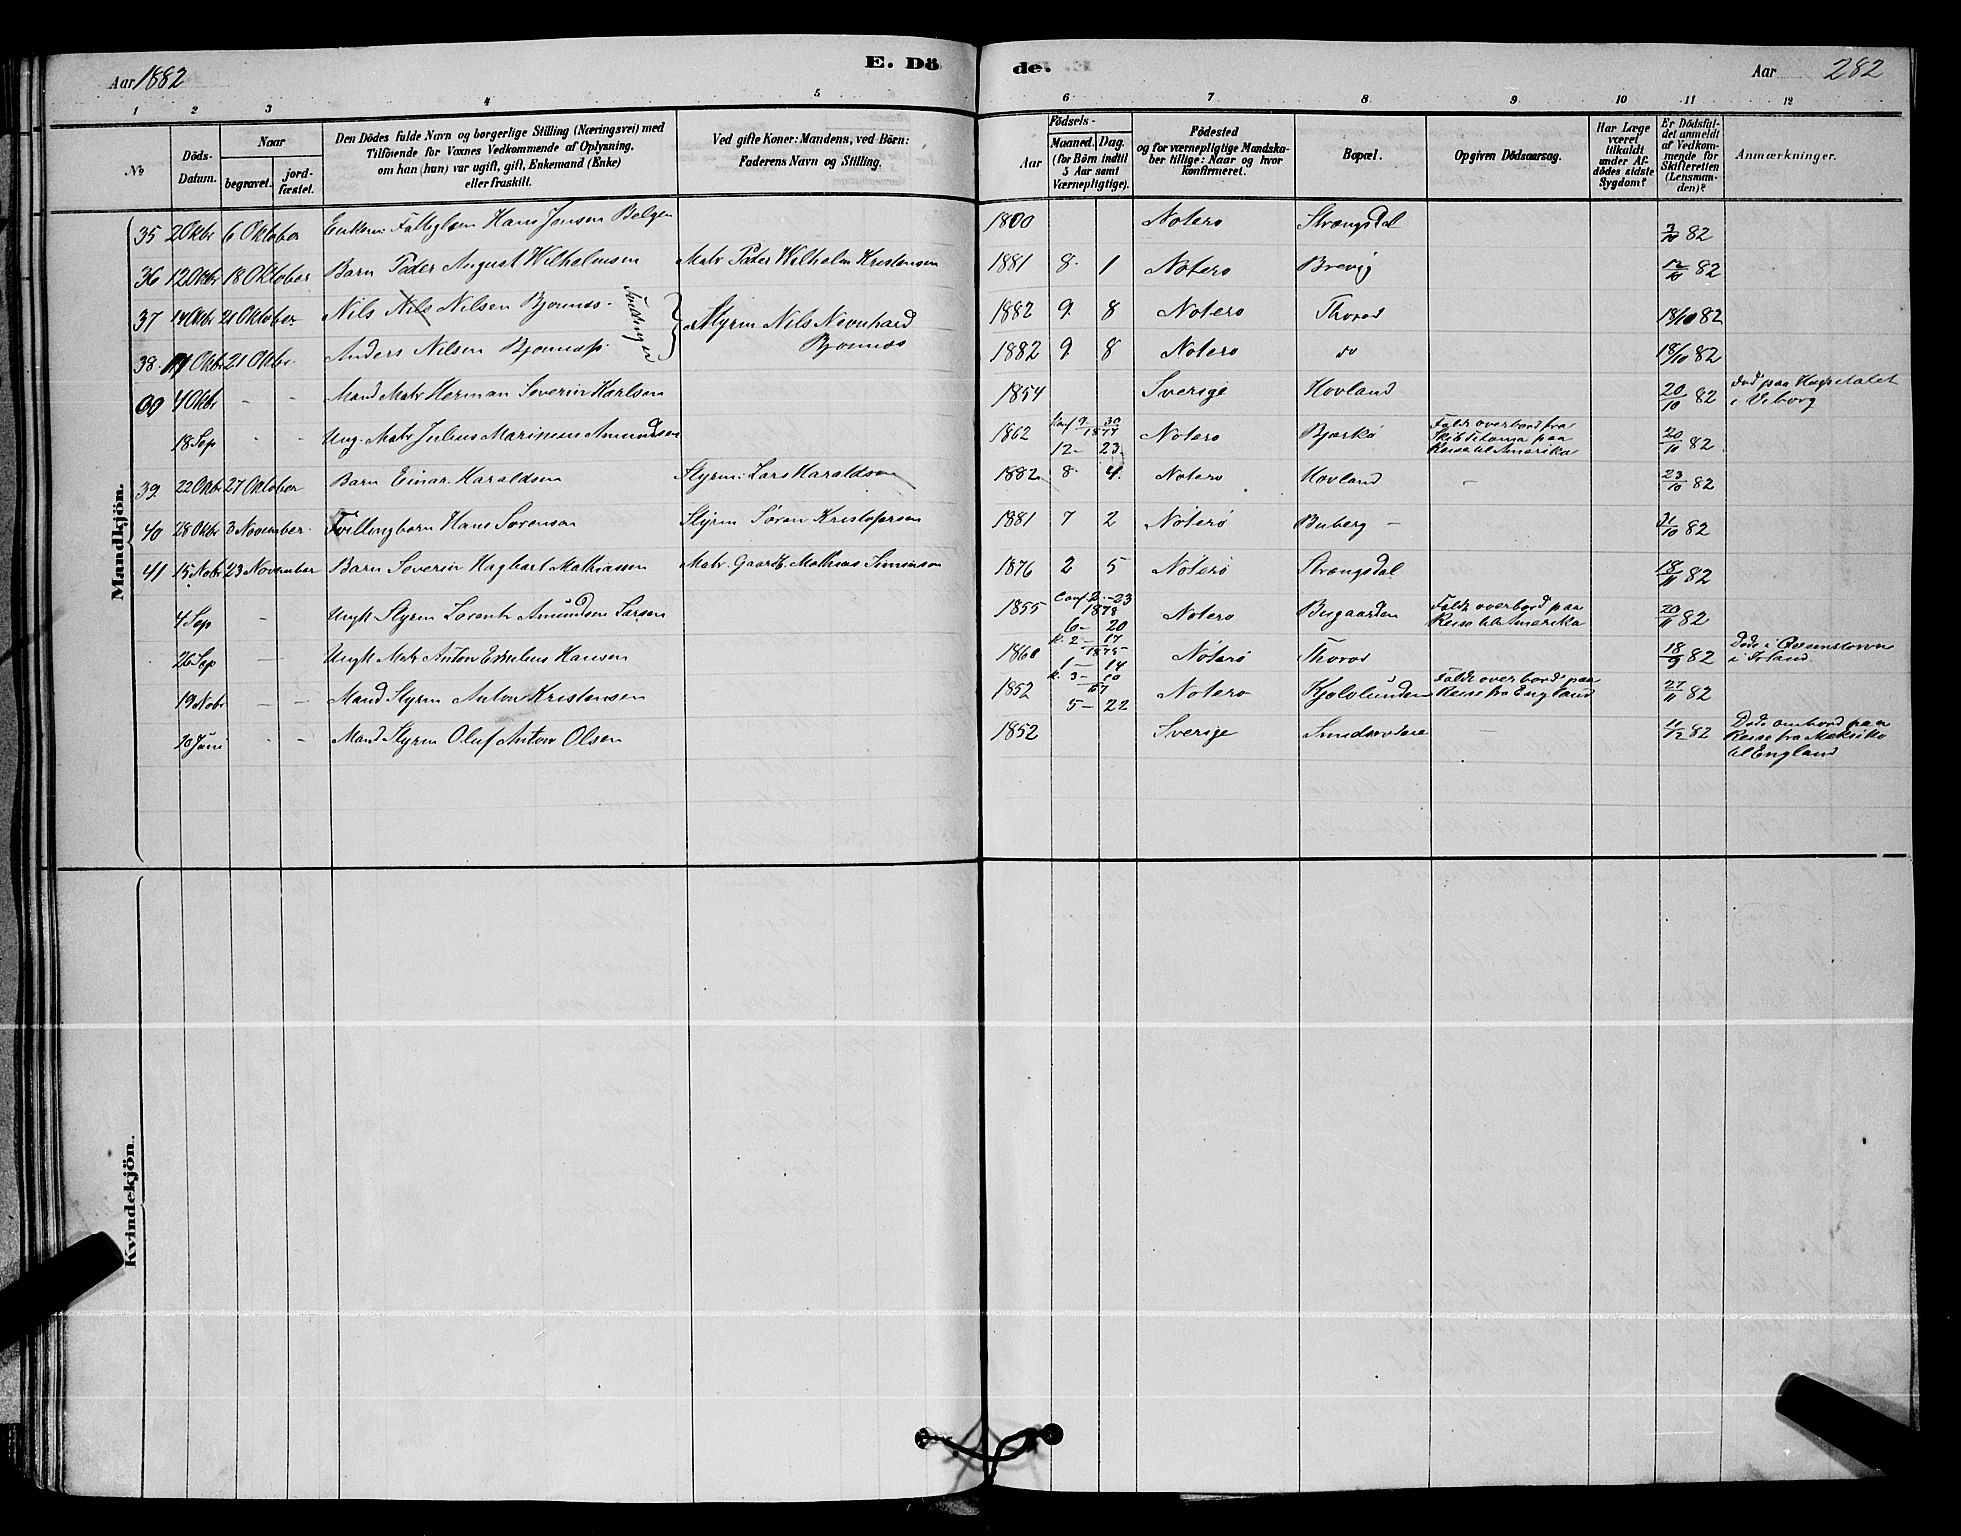 Aar 1882
E. Dö
de.
Aar 282
1 2 3 4 5 6 7 8 9 10 11 12
No
Döds-Datum.
Naar
begravet.
jord-fæstet.
Den Dödes fulde Navn og borgerlige Stilling (Næringsvei) med
Tilföiende for Voxnes Vedkommende af Oplysning,
om han (hun) var ugift, gift, Enkemand (Enke)
eller fraskilt.
Ved gifte Koner: Mandens, ved Börn:
Faderens Navn og Stilling.
Födsels-
Aar
Maaned.
Dag.
(for Börn indtil
5 Aar samt
Værnepligtige).
Födested
og for værnepligtige Mandska-
ber tillige: Naar og hvor
konfirmeret.
Bopæl.
Opgiven Dödsaarsag.
Har Læge
været
tilkaldt
under Af-
dödes sidste
Sygdom?
Er Dödsfal-
det anmeldt
af Vedkom-
mende for
Skifteretten
(Lensman-
den)?
Anmærkninger.
Mandkjön.
35 2 Oktbr 6 Oktober Enkem: Hans Jensen Bolgen 1800 Notero Strængsdal 3/10 82
36 12 Oktbr 18 Oktober Barn Peder August Wilhelmsen Matr Peder Wilhelm Kristensen 1881 8. 1 Notero Brevig 12/10 82
37 14 Oktbr 21 Oktober Nils Nils Nilsen Bjonnes. Tvillinger Styrm Nils Nevnhard 1882 9. 8 Notero Thorod 18/10 82
Bjonnes
38. 11 Oktbr 21 Oktbr. Anders Nilsen Bjonnes 1882 9. 8 Notero do 18/10 82
4 Oktbr - - Mand Matr Herman Severin Karlsen 1854 Sverige Hovland 20/10 82 Død paa Hospitalet
i Viborg
18 Sep - - Ung. Matr Julius Marinius Amundsen 1862 Conf 9/1877 30 Notero Bjerkø Faldt overbord fra
12- 23. Skib paa 20/10 82
Reise til Amerika
39. 22 Oktbr 27 Oktober Barn Einar Haraldsen Styrm: Lars Haraldsen 1882 8. 4. Notero Hovland - 23/10 82
40 28 Oktbr 3 November. Tvillingbarn Hans Sorensen Styrm Søren Kristofersen 1881 7 2 Nøterø Buberg - 31/10 82
41 15 Nobr 23 November Barn Severin Hagbart Mathiassen Matr. Gaardb. Mathias Simensen 1876 2 5 Nøterø Strængsdal 18/11 82
4 Sep - Ungk Styrm Lorentz Amundsen Larsen 1855 Conf 2.-23 1873 Notero Bugaarden Faldt overbord paa 20/11 82
6- 20 Reise til Amerika
26 Sep - Ungk Matr Anton Emilius Hansen 1860 k. 2-17 1875 Nøterø Thorod 18/9 82 Døde i Queenstown
1- 14 i Irland.
19 Nobr - - Mand Styrm Anton Kristensen 1852 k. 3-10 67 Notero Kjolvlunden Faldt overbord paa 27/11 82
5- 22 Reise fra England
20 Juni - - Mand Styrm Oluf Anton Olsen 1852 Sverige - 11/12 82 Døde ombord paa
Reise fra Meksiko
til England
Kvindekjön.